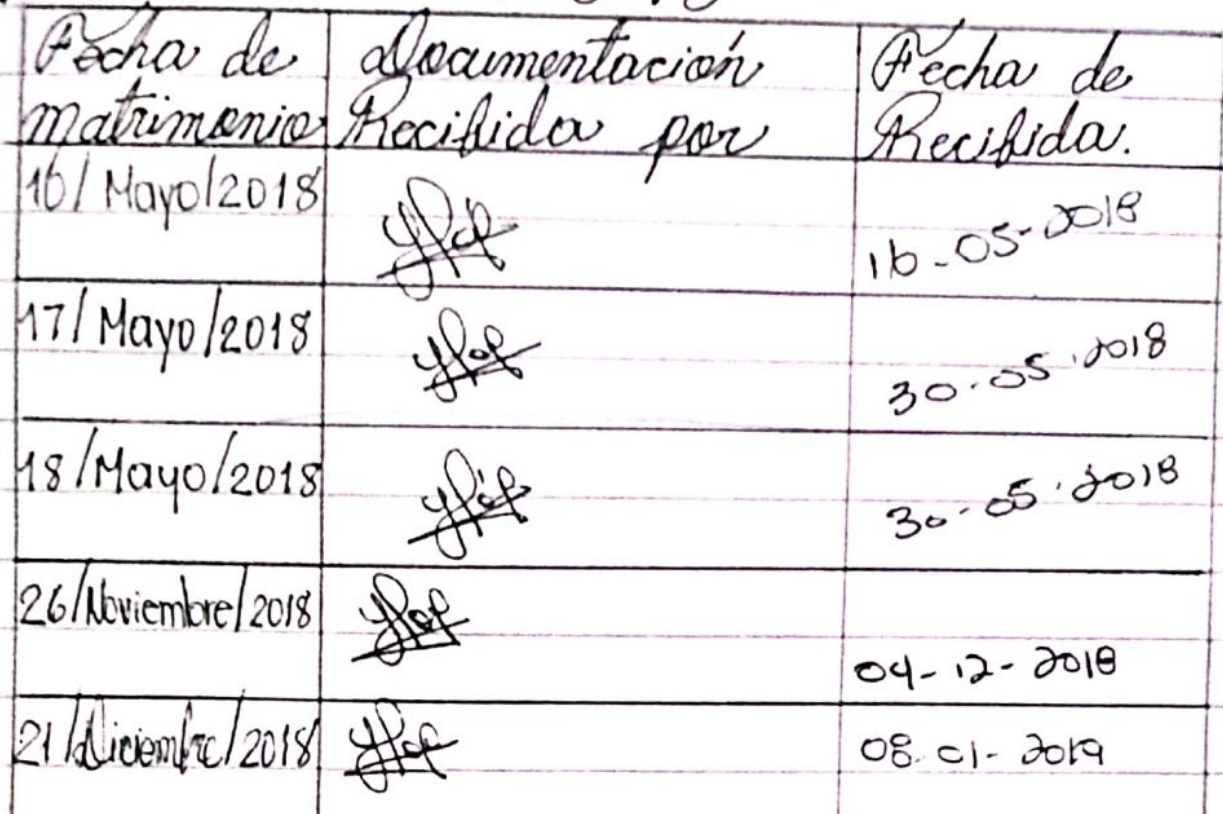 Fecha de Documentación Fecha de
matrimonio Recibida por Recibida.
16/Mayo/2018 16-05-2018
17/Mayo/2018 30-05-2018
18/Mayo/2018 30-05-2018
26/Noviembre/2018 04-12-2018
21/Diciembre/2018 08-01-2019